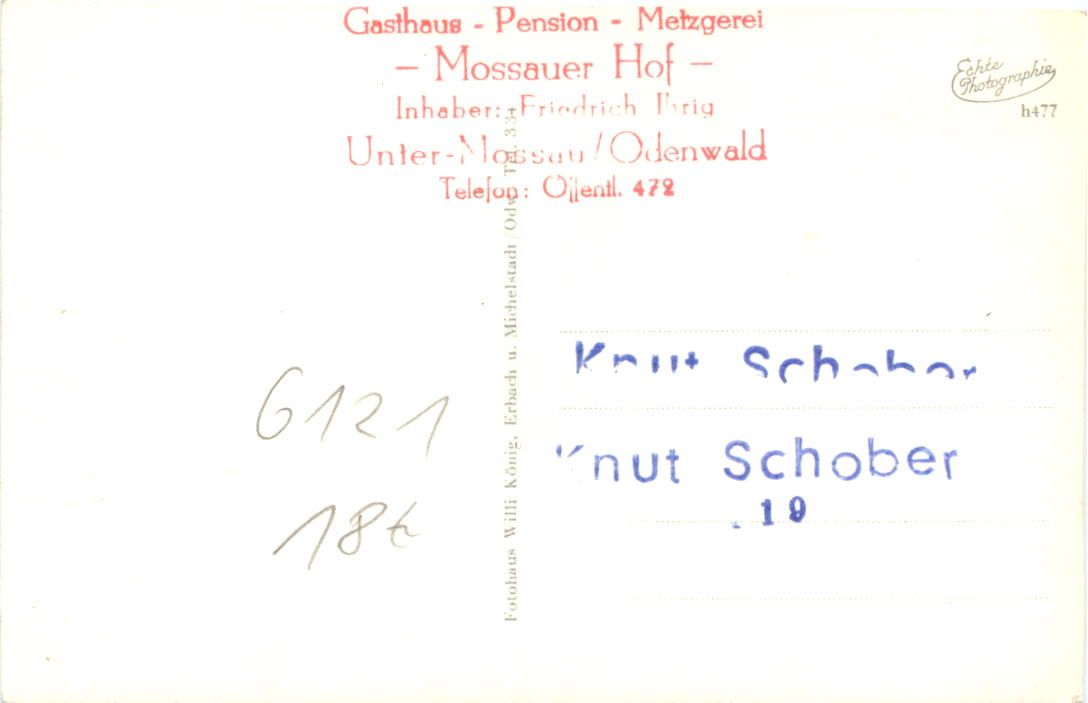 Gasthaus - Pension - Metzgerei
- Mossauer Hof -
Inhaber: Friedrich Ihrig
Unter-Mossau/Odenwald
Telefon: Öffentl. 472
Echte
Photographie
h477
Fotohaus Willi König, Erbach u. Michelstadt/Odw. Tel. 334
Knut Schober
Knut Schober
19
6121
18t